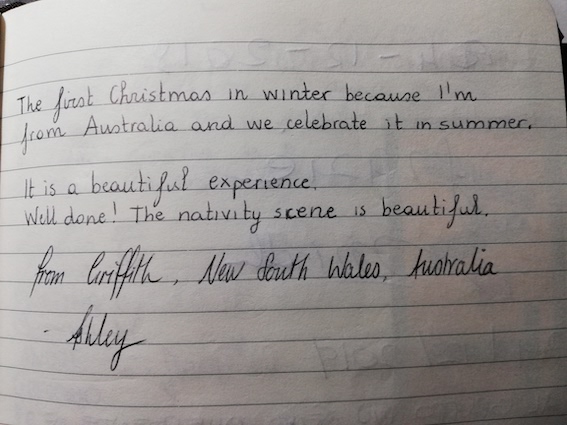 The first Christmas in winter because I'm
from Australia and we celebrate it in summer.
It is a beautiful experience.
Well done! The nativity scene is beautiful.
from Griffith, New South Wales, Australia
- Ashley